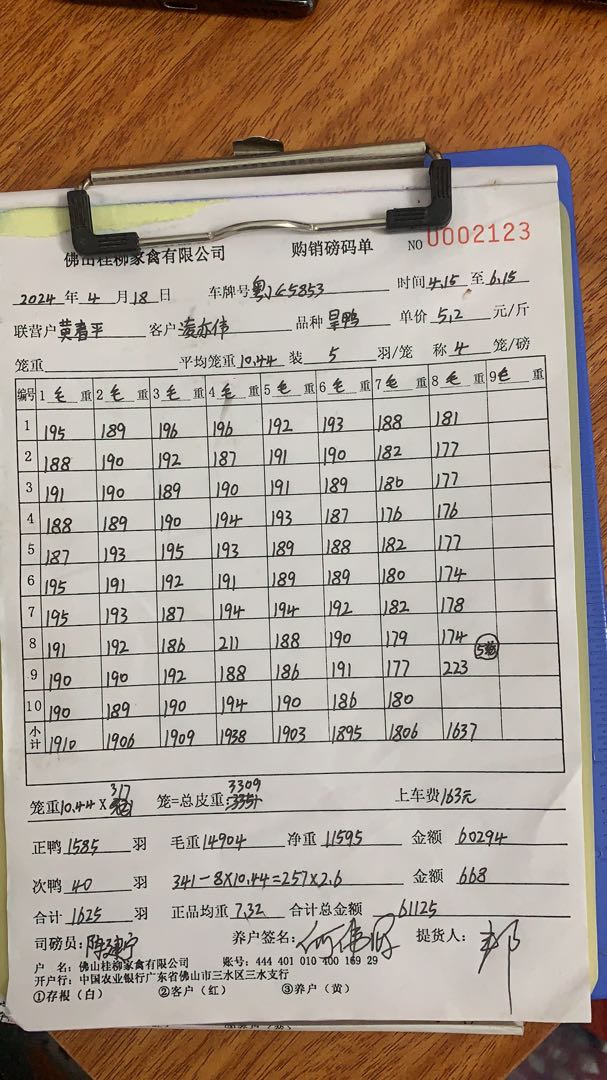 佛山桂柳家禽有限公司 购销磅码单 NO 0002123
2024 年 4 月 18 日 车牌号 时间 4.15 至 6.15
联营户 黄春平 客户 凌亦伟 品种 旱鸭 单价 5.2 元/斤
笼重 平均笼重 10.44 装 5 羽/笼 称 4 笼/磅
编号 1 毛 重 2 毛 重 3 毛 重 4 毛 重 5 毛 重 6 毛 重 7 毛 重 8 毛 重 9 毛 重
1 195 189 196 196 192 193 188 181
2 188 190 192 187 191 190 182 177
3 191 190 189 190 191 189 180 177
4 188 189 190 194 193 187 176 176
5 187 193 195 193 189 188 182 177
6 195 191 192 191 189 189 180 174
7 195 193 187 194 194 192 182 178
8 191 192 186 211 188 190 179 174
9 190 190 192 188 186 191 177 223
10 190 189 190 194 190 186 180
小计 1910 1906 1909 1938 1903 1895 1806 1637
笼重 10.44 X 317 笼=总皮重: 3309 上车费 163元
正鸭 1585 羽 毛重 14904 净重 11595 金额 60294
次鸭 40 羽 341-8X10.44=257X2.6 金额 668
合计 1625 羽 正品均重 7.32 合计总金额 61125
司磅员: 养户签名: 提货人:
户 名: 佛山桂柳家禽有限公司 账号: 444 401 010 400 169 29
开户行: 中国农业银行广东省佛山市三水区三水支行
①存根（白） ②客户（红） ③养户（黄）